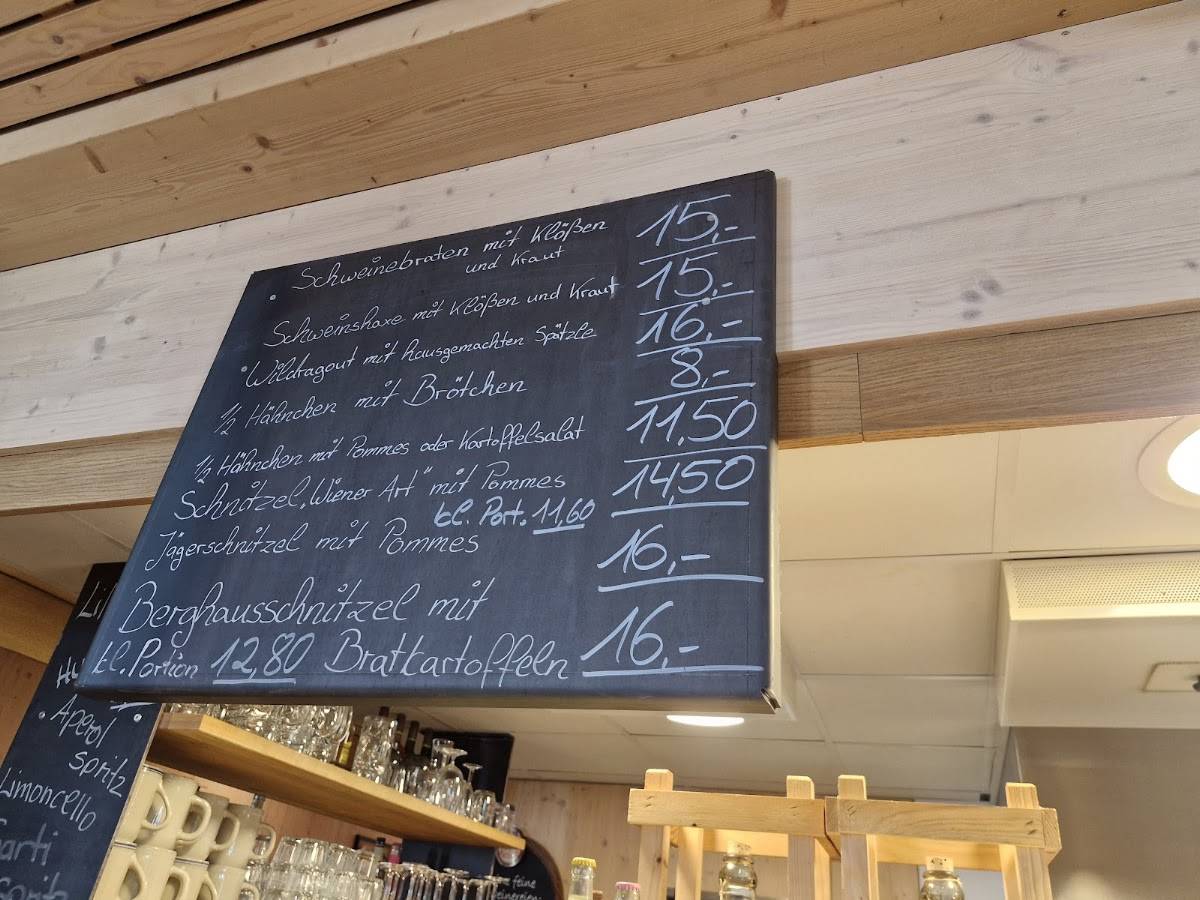 Schweinebraten mit Klößen 15,-
und Kraut
Schweinshaxe mit Klößen und Kraut 15,-
Wildragout mit hausgemachten Spätzle 16,-
1/2 Hähnchen mit Brötchen 8,-
1/2 Hähnchen mit Pommes oder Kartoffelsalat 11,50
Schnitzel „Wiener Art" mit Pommes 14,50
kl. Port. 11,60
Jägerschnitzel mit Pommes 16,-
Berghausschnitzel mit
kl. Portion 12,80 Bratkartoffeln 16,-
Aperol
spritz
Limoncello